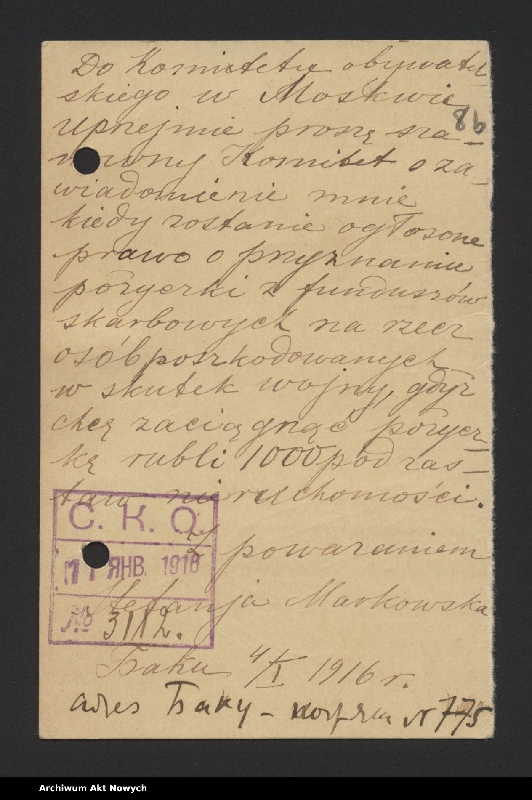 Do Komitetu obywatel
skiego w Moskwie
86
Uprejmie proszę sza-
nowny Komitet o za-
wiadomienie mnie
kiedy zostanie ogłosone
prawo o pryznaniu
pożyczki z funduszów
skarbowych na rzecz
osób poszkodowanych
w skutek wojny, gdyż
chcę zaciągnąć pożycz-
kę rubli 1000 pod zas-
taw nieruchomości.
Z poważaniem
Stefanja Markowska
Баku 4/I 1916 r.
adres Баку -
N 775
С. К. О.
11 ЯНВ. 1916
№ 3112.
Archiwum Akt Nowych